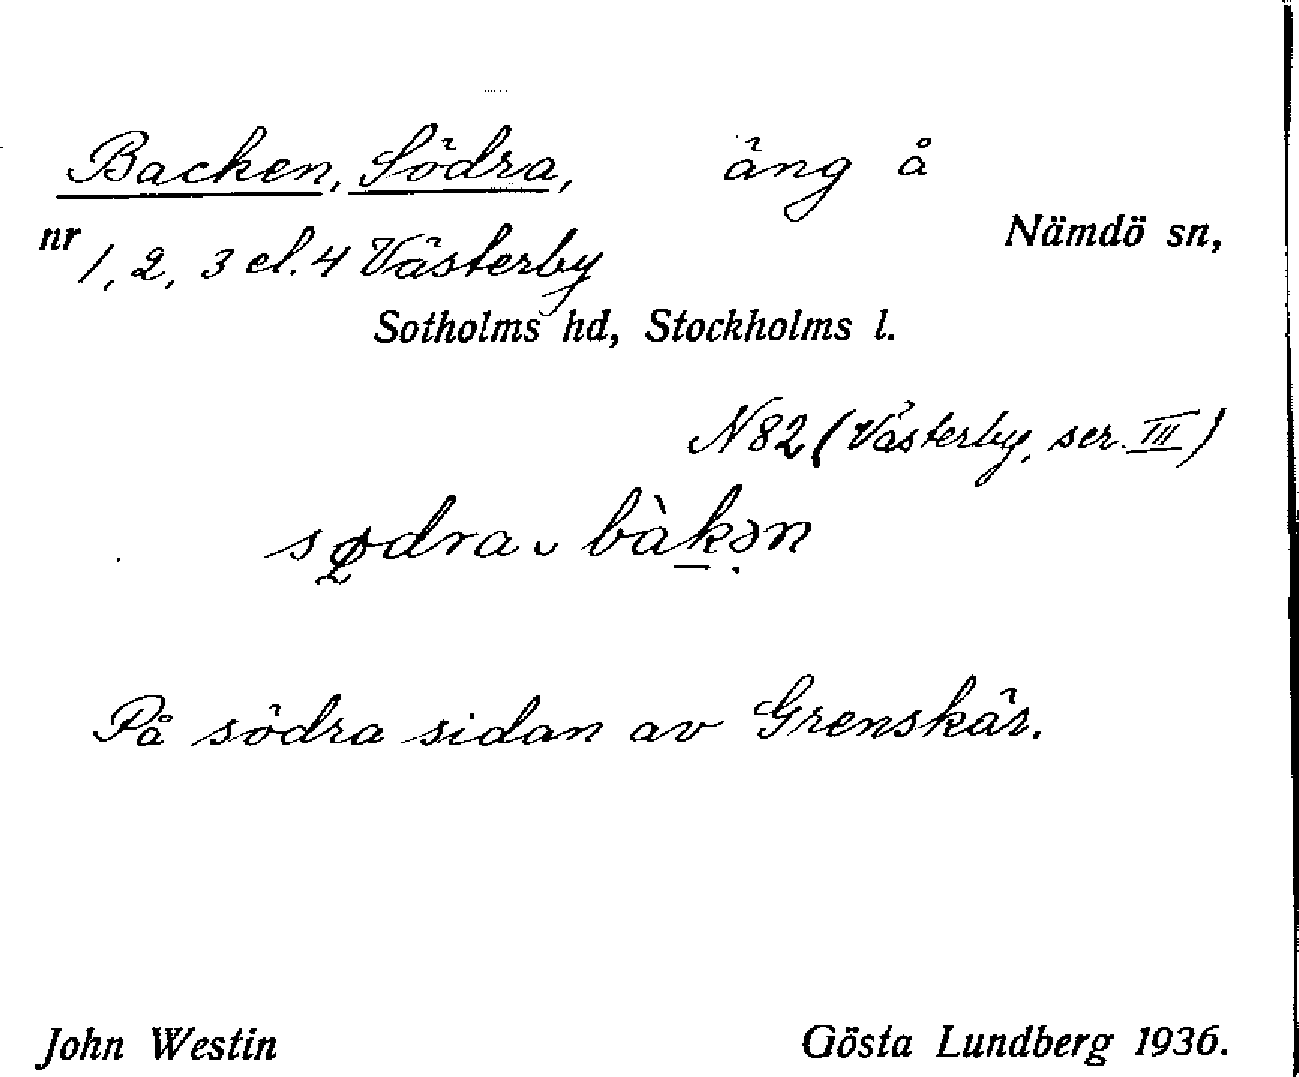 Backen, Södra, äng å
nr 1, 2, 3 el. 4 Västerby
Nämdö sn,
Sotholms hd, Stockholms l.
N 82 (Västerby, ser. III)
sødra ᴗ bàkən
På södra sidan av Grenskär.
John Westin Gösta Lundberg 1936.